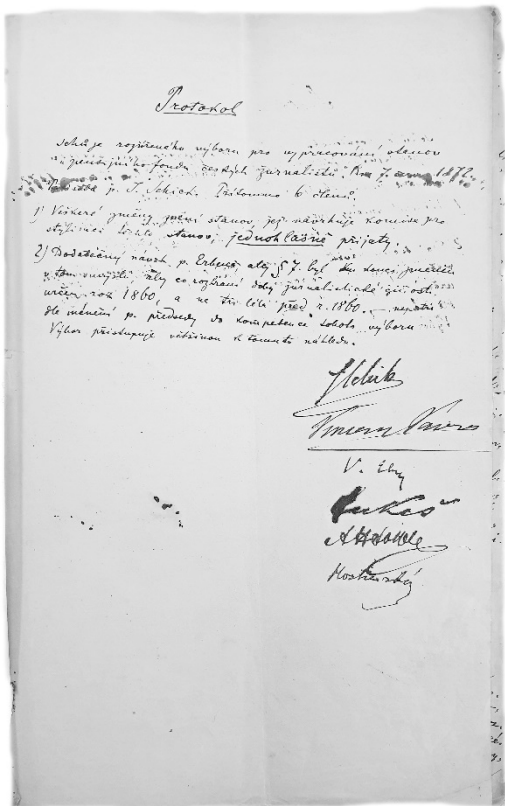 Protokol
Schůze rozšířeného výboru pro vypracování stanov
penzijního fondu českých žurnalistů. 7. 1872.
p. J. Schick. Přítomno 6 členů.
1) Veškeré změny znění stanov, jež navrhuje komise pro
stylisaci těchto stanov, jednohlasně přijaty.
2) Dodatečný návrh p. Erbena, aby § 7. byl
v tom smyslu, aby co rozhraní doby žurnalistické činnosti
určen rok 1860, a ne tři léta před r. 1860. nepatří
dle mínění p. předsedy do kompetence tohoto výboru
Výbor přistupuje většinou k tomuto náhledu.
Vincenc Vávra
Lukeš